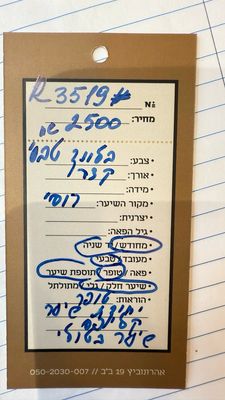 R 3519#
№
מחיר: 2500 ₪
• צבע: בלונד טבעי
• אורך: קצר
• מידה:
• מקור השיער: רוסי
• יצרנית:
• גיל הפאה:
• מחודש/יד שניה
• מעובד/טבעי
• פאה/טופר/תוספת שיער
• שיער חלק/גלי/מתולתל
• הוראות: טופר
שיער
שיער בתולי
אהרונוביץ 19 ב"ב // 050-2030-007